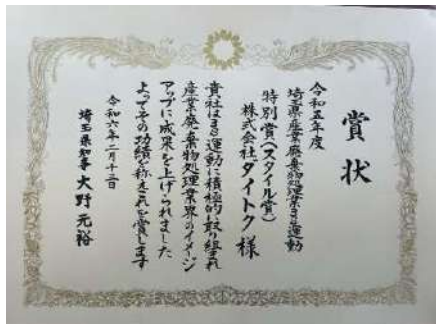 賞状
令和五年度
埼玉県産業廃棄物処理業3S運動
特別賞(スタイル賞)
株式会社タイトク様
貴社は3S運動に積極的に取り組まれ
産業廃棄物処理業界のイメージ
アップに成果を上げられました
よってその功績を称えこれを賞します
令和六年二月十三日
埼玉県知事 大野元裕